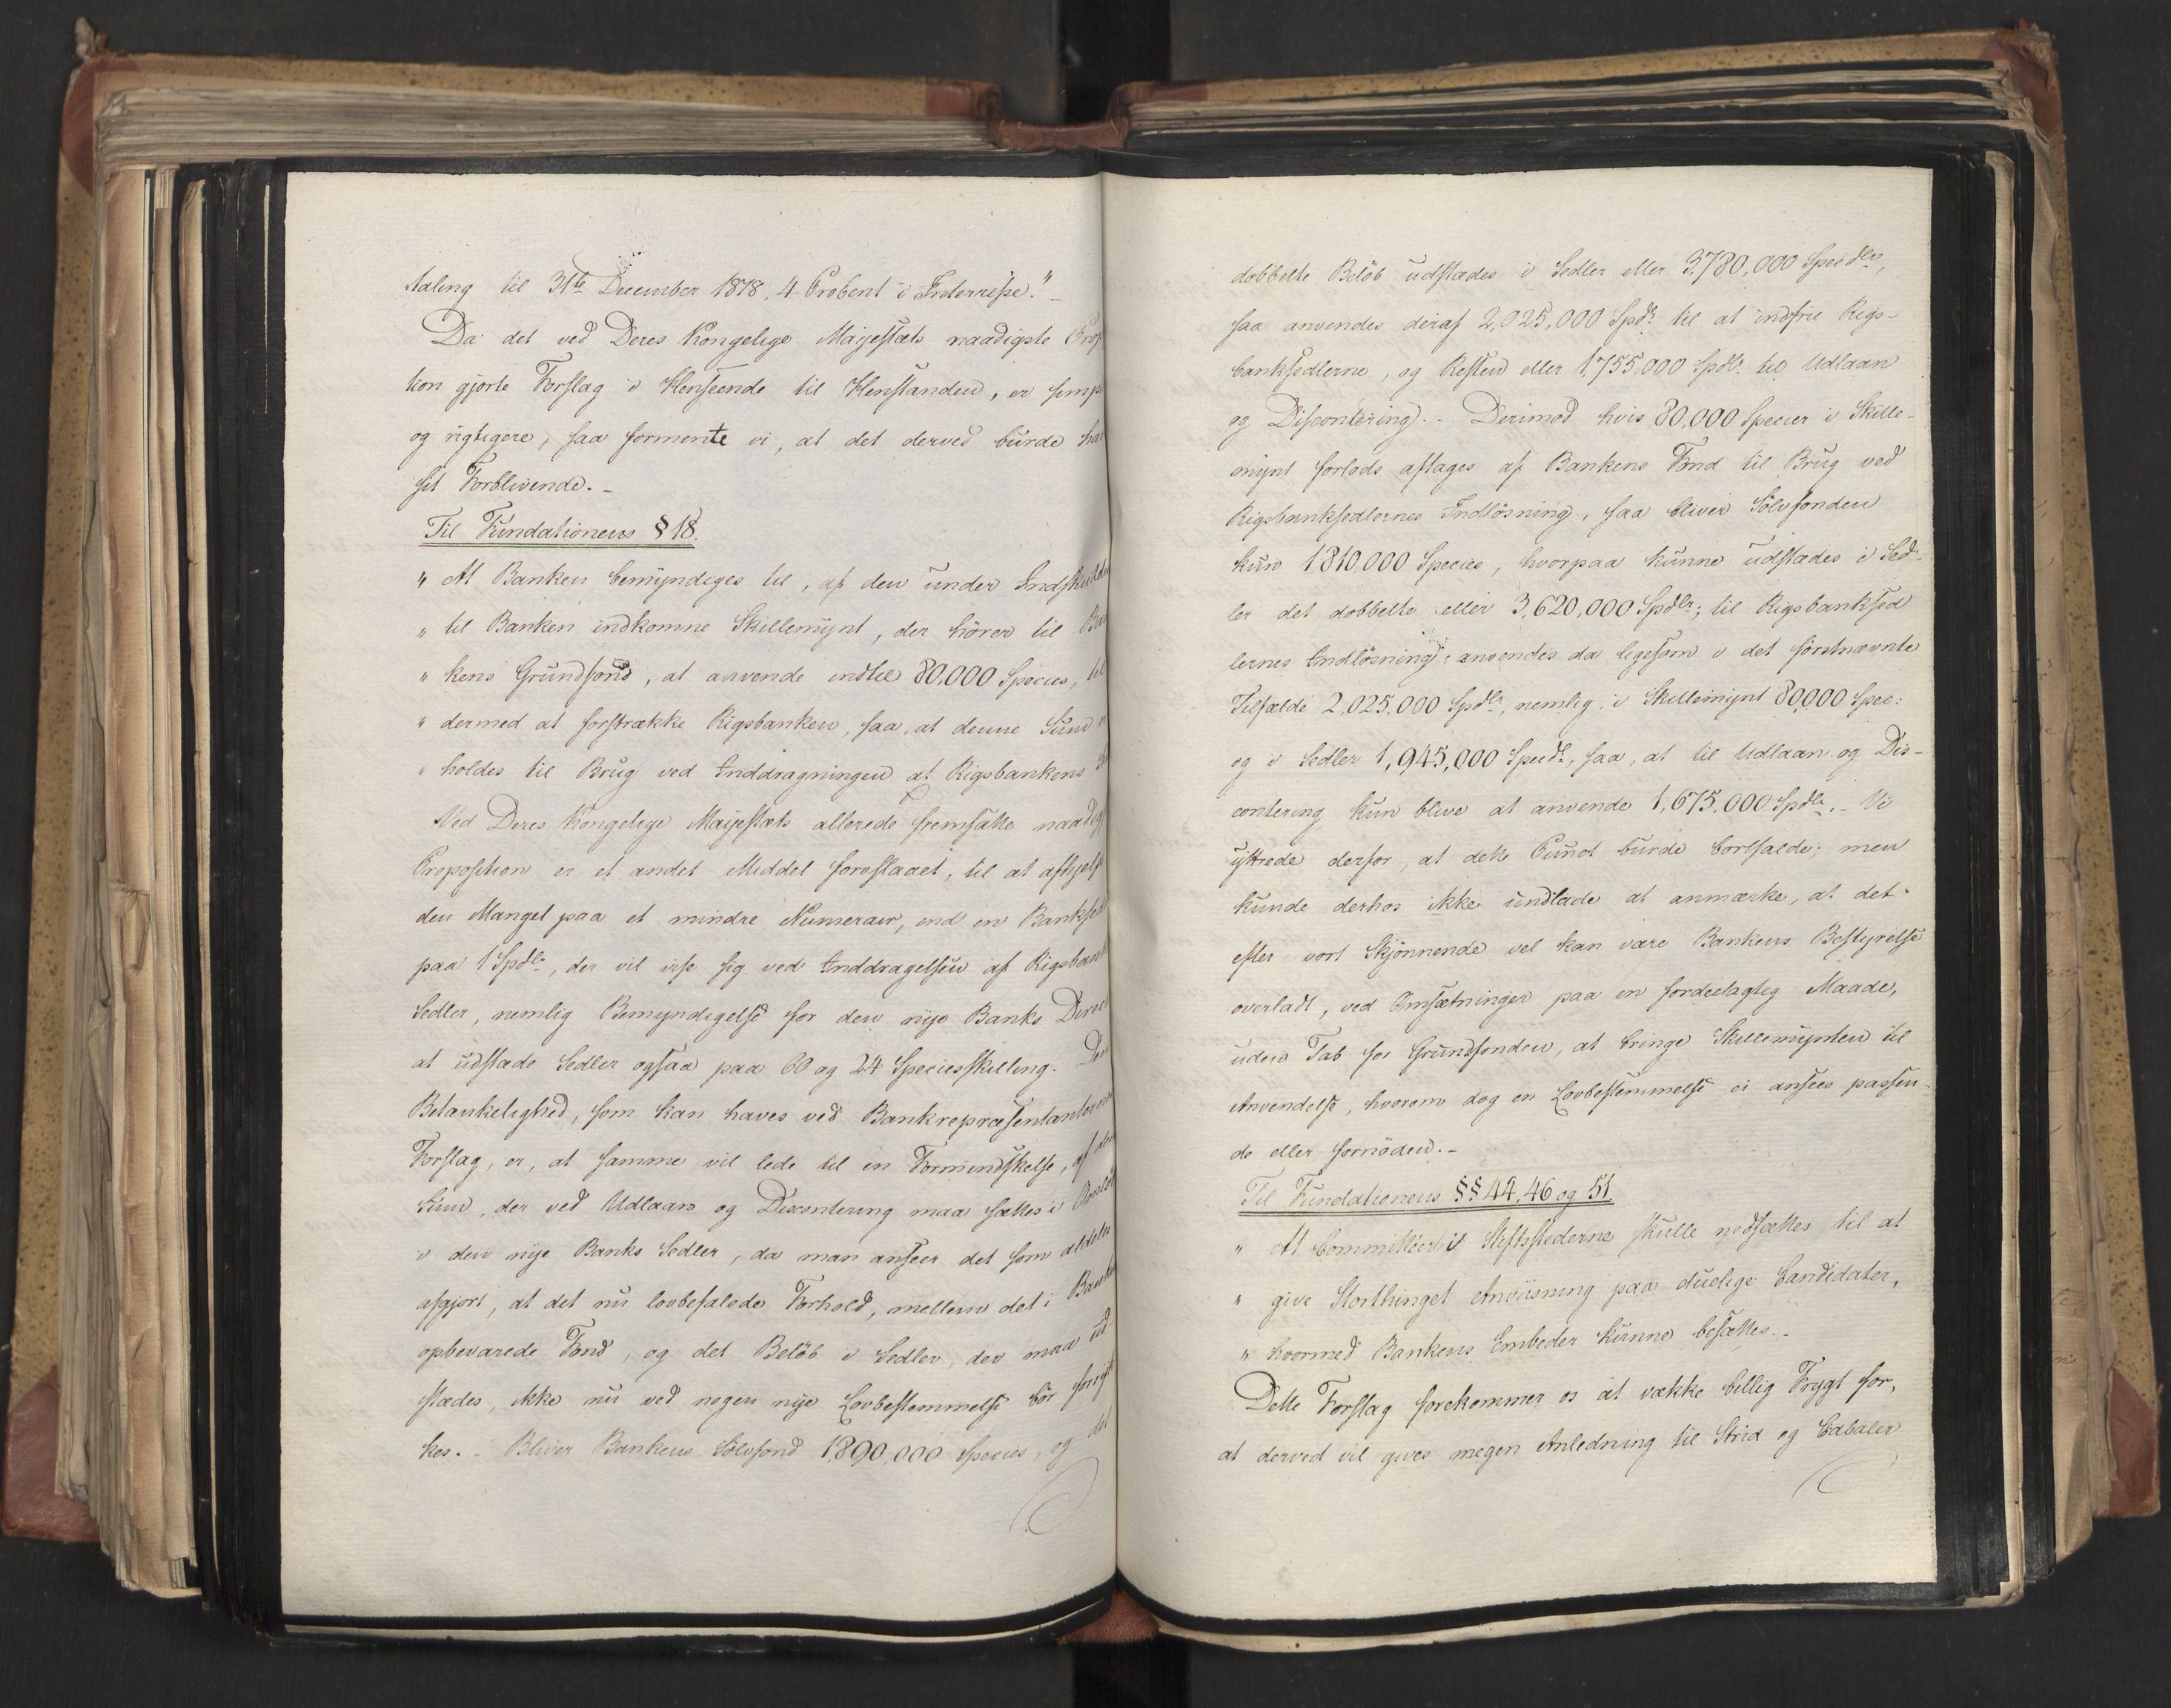 taling til 31te December 1818, 4 Procent i Interresse." _
Da det ved Deres Kongelige Majestæts naadigste Prop
tion gjorte Forslag i Henseende til Henstanden, er simp
og rigtigere, saa formente vi, at det derved burde ha
sit Forblivende. _
Til Fundationens § 18.
" At Banken bemyndiges til, af den under Indskudde
" til Banken indkomne Skillemynt, der hörer til Ban
" kens Grundfond, at anvende indtil 80,000 Species, til
" dermed at forstrække Rigsbanken, saa, at denne Sum
" holdes til Brug ved Inddragningen af Rigsbankens
Ved Deres Kongelige Majestæts allerede fremsatte naadig
Proposition er et andet Middel foreslaaet, til at afhjelpe
den Mangel paa et mindre Numerair, end en Banksed
paa 1 Spdlr, der vil vise sig ved Inddragelsen af Rigsbank
Sedler, nemlig Bemyndigelse for den nye Banks Direc
at udstæde Sedler ogsaa paa 60 og 24 Speciesskilling. Den
Betænkelighed, som kan haves ved Bankrepræsentanternes
Forslag, er, at samme vil lede til en Formindskelse, af den
Sum, der ved Udlaan og Discontering maa sættes i Omlöb
i den nye Banks Sedler, da man anseer det som aldeles
afgjort, at det nu lovbefalede Forhold, mellem det i Banken
opbevarede Fond, og det Belöb i Sedler, der maa ud
stædes, ikke nu ved nogen nye Lovbestemmelse bör forryk
kes. _ Bliver Bankens Sölvfond 1,890,000 Species, og det
dobbelte Belöb udstædes i Sedler eller 3,780,000 Specdlr,
saa anvendes deraf 2,025,000 Spdr til at indfrie Rigs-
banksedlerne, og Resten eller 1,755,000 Spdlr til Udlaan
og Discontering. - Derimod hvis 80,000 Species i Skille-
mynt forlods aftages af Bankens Fond til Brug ved
Rigsbanksedlernes Indlösning, saa bliver Sölvfonden
kun 1,810,000 Species, hvorpaa kunne udstædes i Sed-
ler det dobbelte eller 3,620,000 Spdlr; til Rigsbanksed
lernes Indlösning anvendes da ligesom i det förstnævnte
Tilfælde 2,025,000 Spdlr, nemlig i Skillemynt 80,000 Spec:
og i Sedler 1,945,000 Specdr, saa, at til Udlaan og Dis-
contering kun blive at anvende 1,675,000 Spdlr. _ Vi
yttrede derfor, at dette Punct burde bortfalde; men
kunde derhos ikke undlade at anmærke, at det
efter vort Skjönnende vel kan være Bankens Bestyrelse
overladt, ved Omsætninger paa en fordeelagtig Maade,
uden Tab for Grundfonden, at bringe Skillemynten til
Anvendelse, hvorom dog en Lovbestemmelse ei ansees passen-
de eller fornöden. _
Til Fundationens §§ 44, 46 og 51.
" At Committeer i Stiftsstæderne skulle nedsættes til at
" give Storthinget Anviisning paa duelige Candidater,
" hvormed Bankens Embeder kunne besættes. _
Dette Forslag forekommer os at vække billig Frygt for,
at derved vil gives megen Anledning til Strid og Cabaler